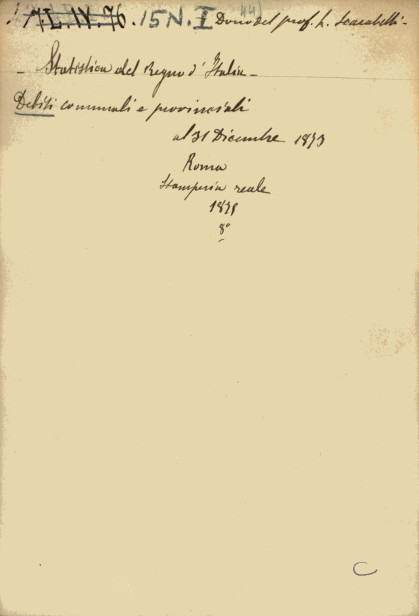 7.L.IV.76. 15 N. I Dono del prof. L. Scarabelli -
- Statistica del Regno d'Italia -
Debiti communali e provinciali
al 31 Dicembre 1873
Roma
Stamperia reale
8°
C